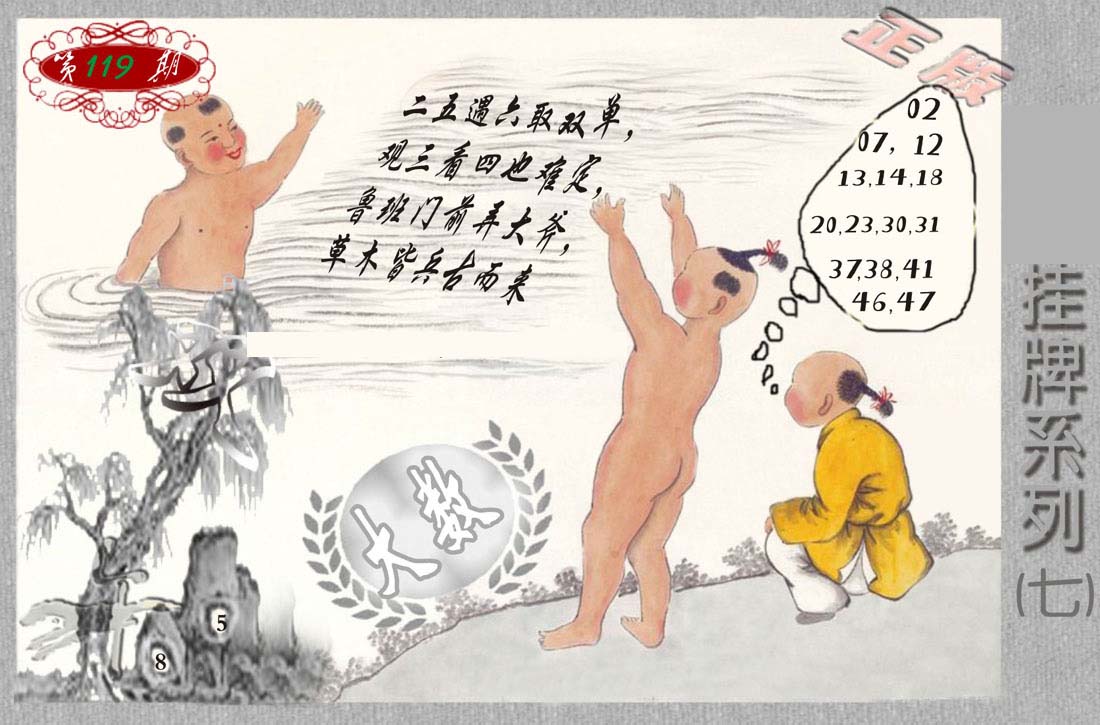 第119期
正版
二五遇六取双单，
观三看四也难定，
鲁班门前弄大斧，
草木皆兵古而来
02
07，12
13,14,18
20,23,30,31
37,38,41
46,47
挂牌系列(七)
大数
5
8